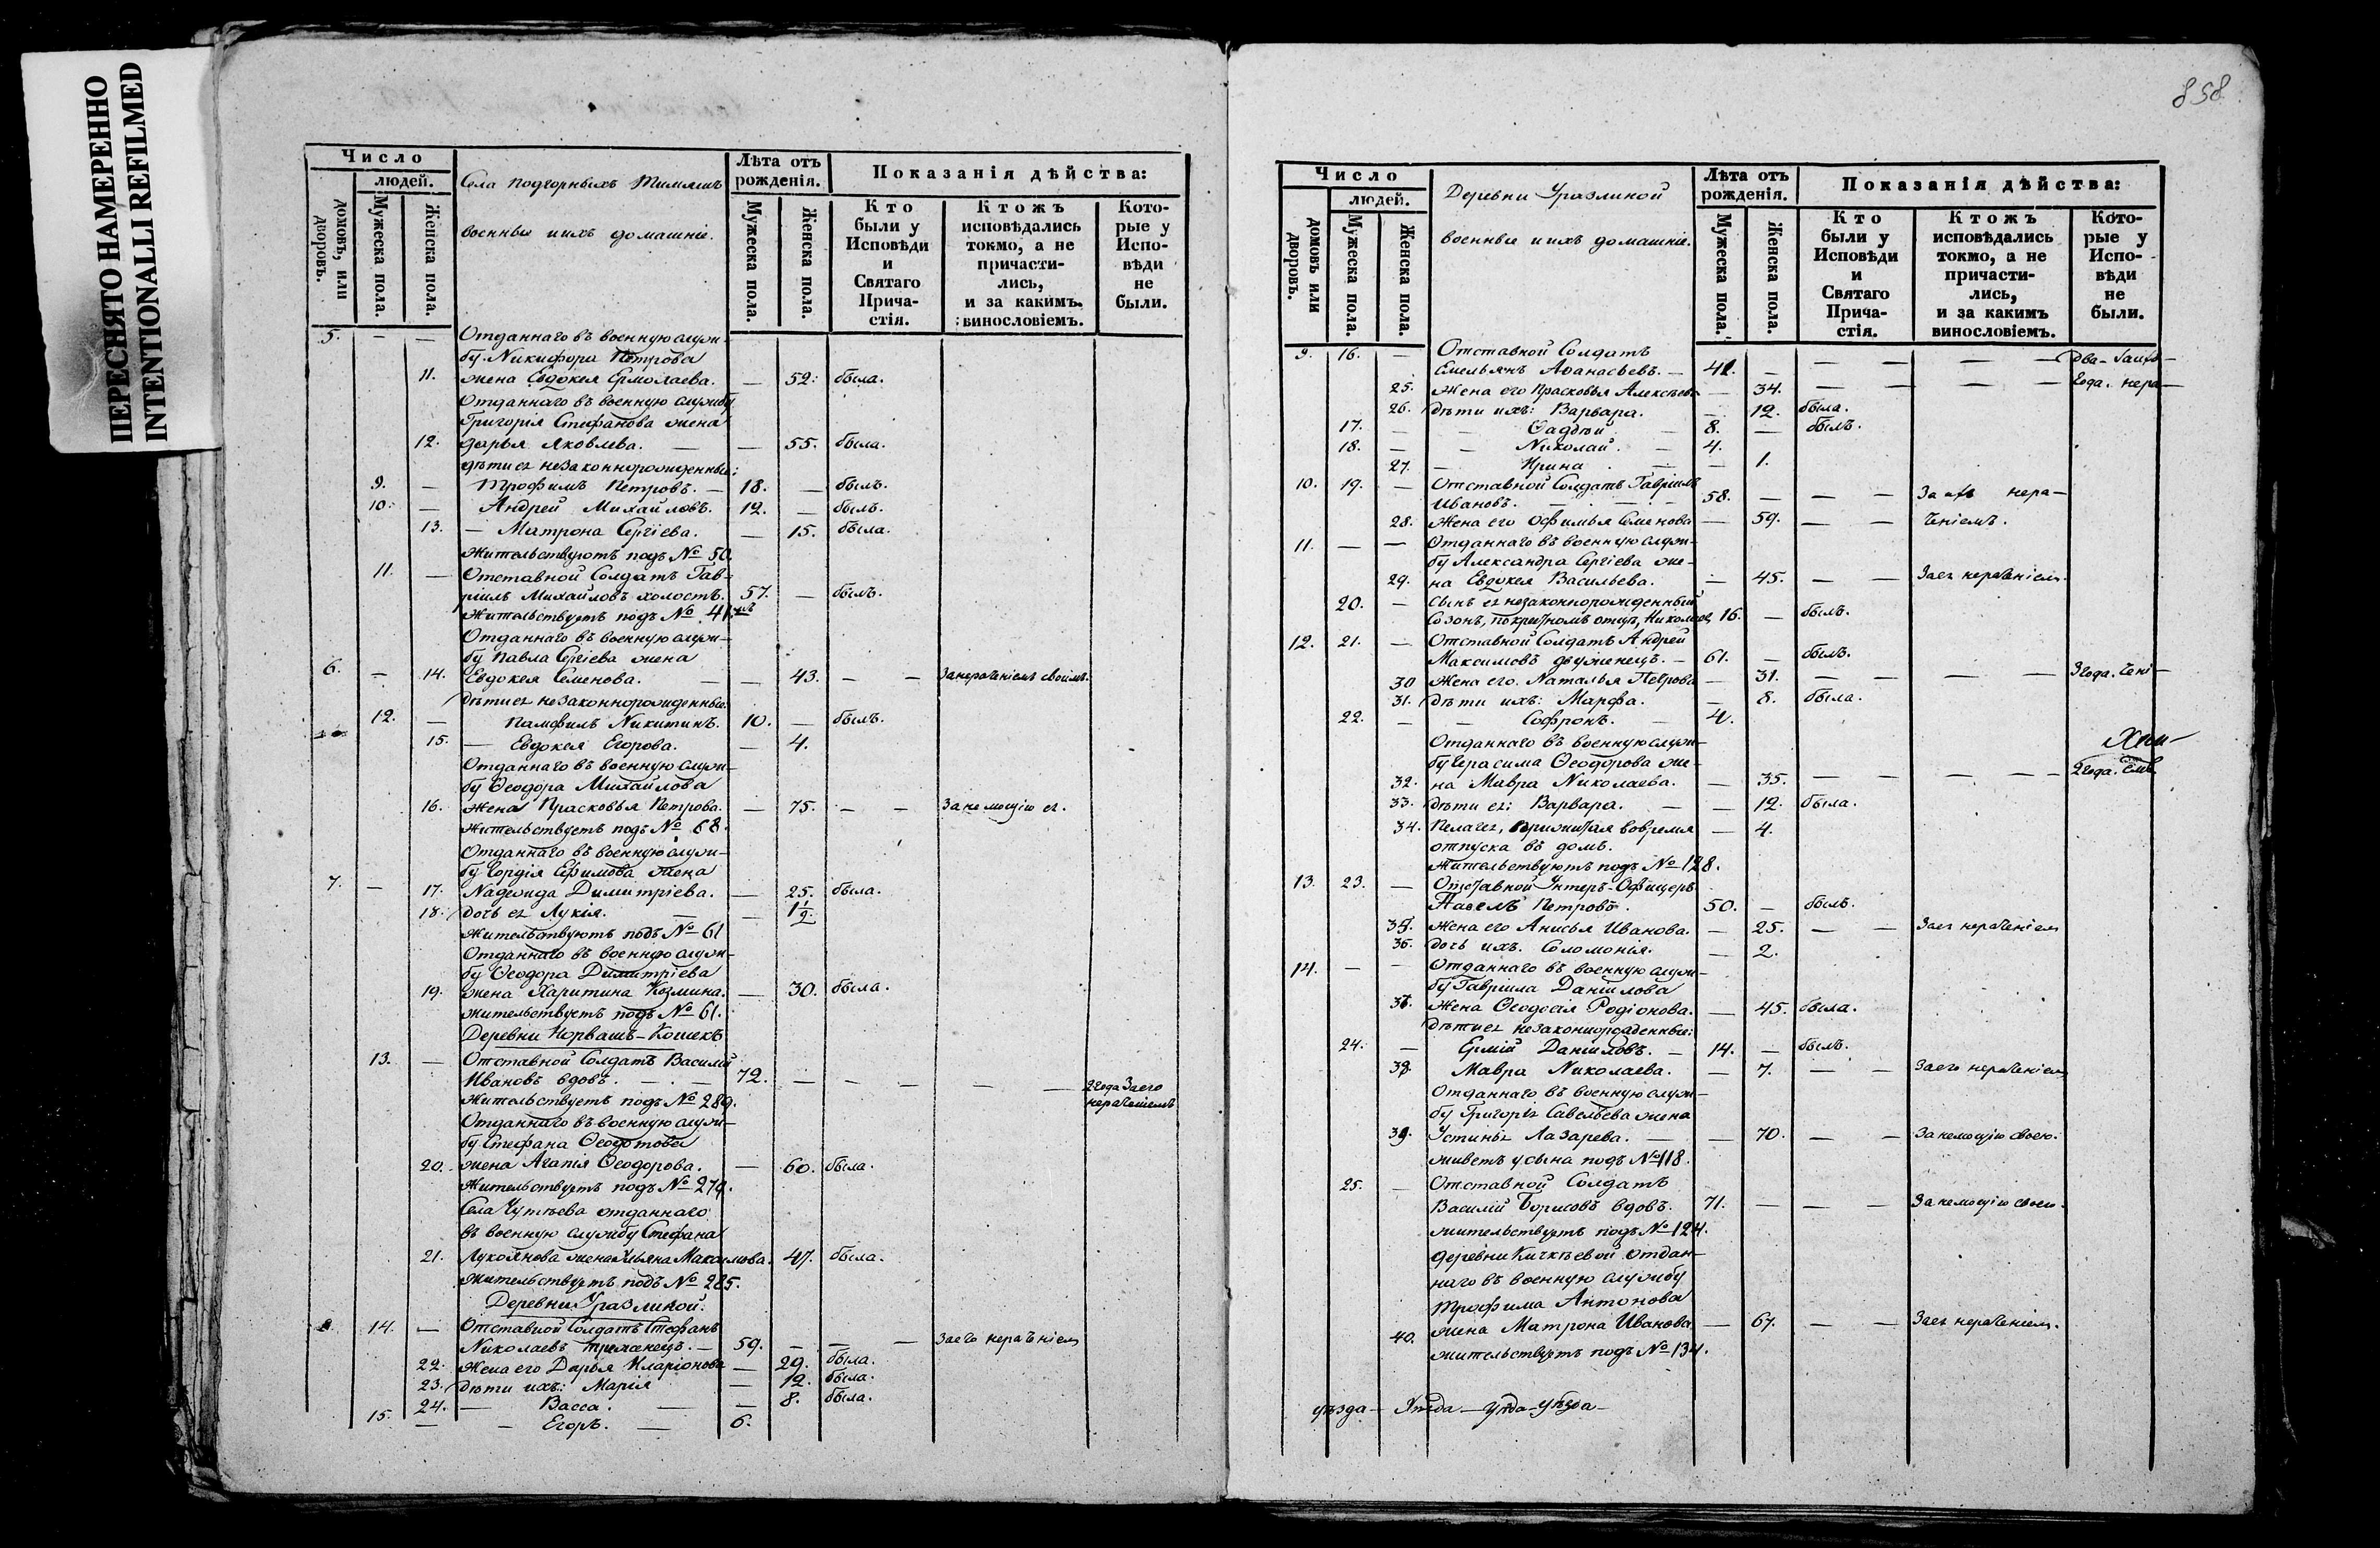 ПЕРЕСНЯТО НАМЕРЕННО
INTENTIONALLI REFILMED
Число
людей.
домовъ, или дворовъ.
Мужеска пола.
Женска пола.
Села Подгорныхъ Тимяшъ
военные и ихъ домашніе.
Лѣта отъ рожденія.
Мужеска пола.
Женска пола.
Показанія дѣйства:
Кто были у Исповѣди и Святаго Прича- стія.
Ктожъ исповѣдались токмо, а не причасти- лись, и за какимъ винословіемъ.
Кото- рые у Испо- вѣди не были.
5. — — Отданнаго въ военную служ-
бу Никифора Петрова
11. жена Евдокея Ермолаева. — 52. была.
Отданнаго въ военную службу
Григорія Стефанова жена
12. Дарья Яковлева. — — 55. была.
дѣти ея незаконнорожденные:
9. — Трофимъ Петровъ. — 18. — былъ.
10. — Андрей Михайловъ. 12. — былъ.
13. — Матрона Сергіева. — 15. была.
жительствуютъ подъ № 50.
11. — Отставной Солдатъ Гав-
ріилъ Михайловъ холостъ. 57. — былъ.
жительствуетъ подъ № 41.
Отданнаго въ военную служ-
бу Павла Сергіева жена
6. — 14. Евдокея Семенова. — — 43. — — За нераченіемъ своимъ.
дѣти ея незаконнорожденные:
12. — Памфилъ Никитинъ. 10. — былъ.
15. — Евдокея Егорова. — 4.
Отданнаго въ военную служ-
бу Ѳеодора Михайлова
16. жена Прасковья Петрова. — 75. — — За немощію ея.
жительствуетъ подъ № 68.
Отданнаго въ военную служ-
бу Гордія Ефимова жена
7. — 17. Надежда Димитріева. — 25. была.
18. дочь ея Лукія. — — 1½.
жительствуютъ подъ № 61
Отданнаго въ военную служ-
бу Ѳеодора Димитріева
19. жена Харитина Козмина. — 30. была.
жительствуетъ подъ № 61.
Деревни Норвашъ-Кошекъ
13. — Отставной Солдатъ Василій
Ивановъ вдовъ. — — 72. — — — — — 2 года За его
жительствуетъ подъ № 289. нераченіемъ
Отданнаго въ военную служ-
бу Стефана Ѳеодотова
20. жена Агапія Ѳеодорова. — 60. была.
жительствуетъ подъ № 279.
Села Чутѣева отданнаго
въ военную службу Стефана
21. Лукоянова жена Ульяна Максимова. 47. была.
жительствуетъ подъ № 285.
Деревни Уразлиной.
8. 14. — Отставной Солдатъ Стефанъ
Николаевъ троженецъ. — 59. — — — За его нераченіемъ
22. Жена его Дарья Иларіонова — 29. была.
23. дѣти ихъ: Марія — 12. была.
24. — Васса. — — 8. была.
15. — — Егоръ. — 6.
858
Число
людей.
домовъ или дворовъ.
Мужеска пола.
Женска пола.
Деревни Уразлиной
военные и ихъ домашніе.
Лѣта отъ рожденія.
Мужеска пола.
Женска пола.
Показанія дѣйства:
Кто были у Исповѣди и Святаго Прича- стія.
Ктожъ исповѣдались токмо, а не причасти- лись, и за какимъ винословіемъ.
Кото- рые у Испо- вѣди не были.
9. 16. — Отставной Солдатъ
Емельянъ Аѳанасьевъ. — 41. — — — — — Два
25. Жена его Прасковья Алексѣева — 34. — — — — года. нера—
26. дѣти ихъ: Варвара. — 12. была.
17. — — Ѳаддѣй — 8. — былъ.
18. — — Николай. — 4.
27. — Ирина. — — 1.
10. 19. — Отставной Солдатъ Гавріилъ
Ивановъ. — 58. — — — За ихъ нера—
28. Жена его Офимья Семенова — 59. — — ченіемъ.
11. — — Отданнаго въ военную служ-
бу Александра Сергіева же-
29. на Евдокея Васильева. — 45. — — За ея нераченіем.
20. — Сынъ ея незаконнорожденный
Созонъ, по крестномъ отцѣ, Николаевъ 16. — былъ.
12. 21. — Отставной Солдатъ Андрей
Максимовъ двуженецъ. — 61. — былъ.
30 Жена его Наталья Петрова — 31. — — — — 3 года. чені—
31. дѣти ихъ: Марфа. — 8. была.
22. — — Софронъ. — 4.
Отданнаго въ военную служ-
бу Герасима Ѳеодорова же-
32. на Мавра Николаева. — 35. — — — — 2 года. емъ
33. дѣти ея: Варвара. — — 12. была.
34. Пелагея, прижитая во время — 4.
отпуска въ домъ.
жительствуютъ подъ № 128.
13. 23. — Отставной Унтеръ-Офицеръ
Павелъ Петровъ. 50. — былъ.
35. Жена его Анисья Иванова. — 25. — — За ея нераченіем
36. дочь ихъ. Соломонія. — 2.
14. — — Отданнаго въ военную служ-
бу Гавріила Данилова
37. Жена Ѳеодосія Родіонова. — 45. была.
дѣти ея незаконнорожденные:
24. — Ермій Даниловъ. — 14. — былъ.
38. Мавра Николаева. — 7. — — За его нераченіем
Отданнаго въ военную служ-
бу Григорья Савельева жена
39. Устинья Лазарева. — — 70. — — За немощію своею.
живетъ у сына подъ № 118.
25. — Отставной Солдатъ
Василій Борисовъ вдовъ. 71. — — — За немощію своею.
жительствуетъ подъ № 124.
деревни Кичкѣевой отдан-
наго въ военную службу
Трофима Антонова
40. жена Матрона Иванова — 67. — — За ея нераченіем.
жительствуетъ подъ № 134.
уѣзда —